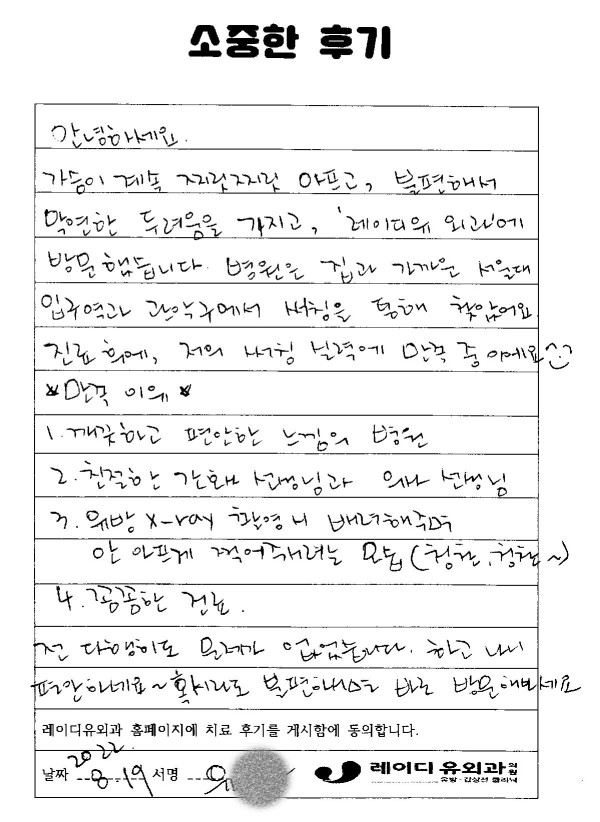 소중한 후기
안녕하세요.
가슴이 계속 찌릿찌릿 아프고, 불편해서
막연한 두려움을 가지고, '레이디유 외과'에
방문했습니다. 병원은 집과 가까운 서울대
입구역과 관악구에서 서칭을 통해 찾았어요
진료 후에, 저의 서칭 능력에 만족 중이에요
*만족 이유*
1. 깨끗하고 편안한 느낌의 병원
2. 친절한 간호사 선생님과 의사 선생님
3. 유방 X-ray 촬영시 배려해주며
안 아프게 찍어주려는 모습 (칭찬, 칭찬~)
4. 꼼꼼한 진료.
전 다행히도 문제가 없었습니다. 하고 나니
편안하네요~ 혹시라도 불편하시면 바로 방문해보세요
레이디유외과 홈페이지에 치료 후기를 게시함에 동의합니다.
날짜 2022. 8.19 서명 유
레이디 유외과의원
유방·갑상선 클리닉